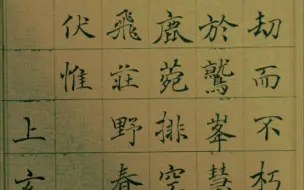 劫而不朽
於鷲峯慧
鹿菀排空
飛莊野春
伏惟
上玄